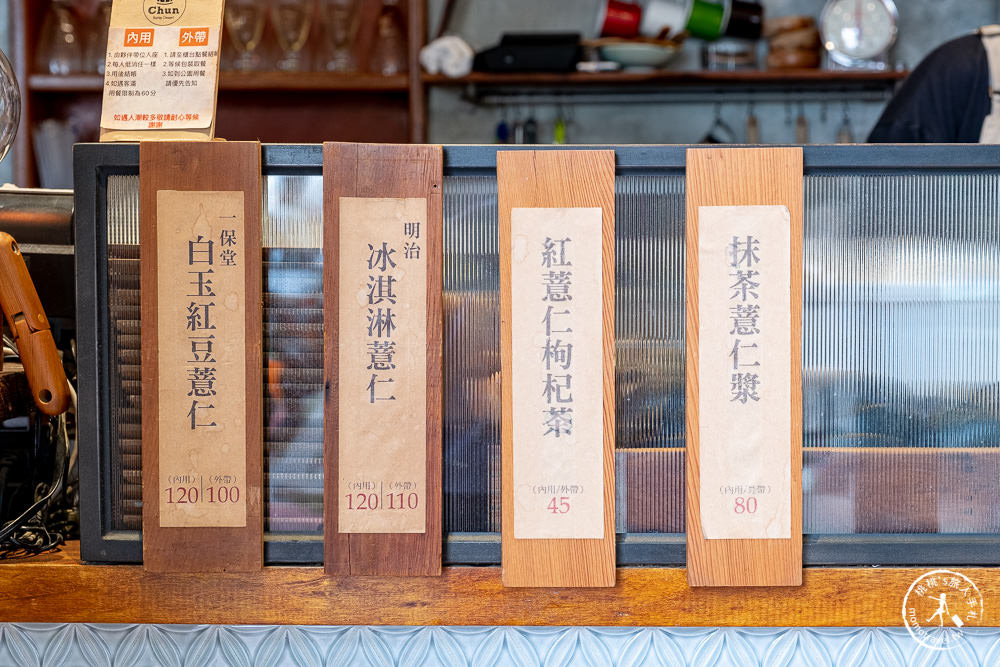 Chun
內用
外帶
1. 由夥伴帶位入座
2. 每人低消任一樣
3. 用後結帳
4. 如遇客滿
用餐限制為60分
1. 請至櫃台點餐結帳
2. 等候包裝取餐
3. 如到公園用餐
請優先告知
如遇人潮較多敬請耐心等候
謝謝
一保堂
白玉紅豆薏仁
(內用) | (外帶)
120 | 100
明治
冰淇淋薏仁
(內用) | (外帶)
120 | 110
紅薏仁枸杞茶
(內用/外帶)
45
抹茶薏仁漿
(內用/外帶)
80
桃桃's旅人手札